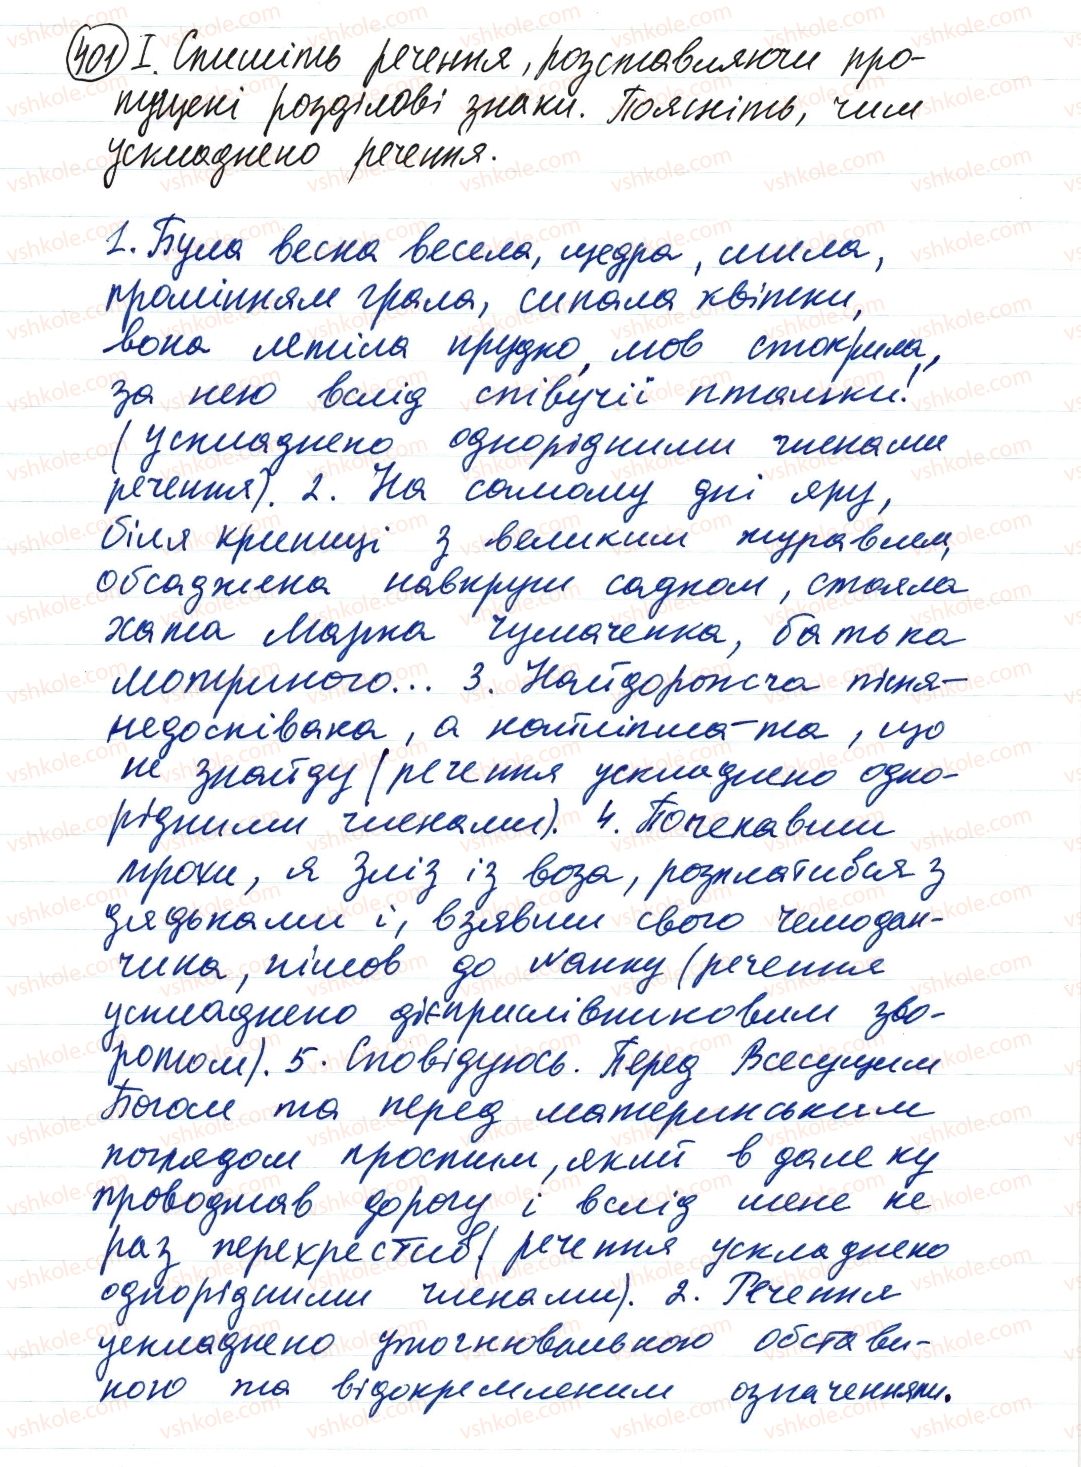 401 І. Спишіть речення, розставляючи про-
пущені розділові знаки. Поясніть, чим
ускладнено речення.
1. Була весна весела, щедра, мила,
промінням грала, сипала квітки,
вона летіла прудко, мов стокрила,
за нею вслід співучії пташки!
(ускладнено однорідними членами
речення). 2. На самому дні яру,
біля криниці з великим журавлем,
обсаджена навкруги садком, стояла
хата Марка Чумаченка, батька
Мотриного... 3. Найдорожча пісня-
недоспівака, а найліпша-та, що
не знайду (речення ускладнено одно-
рідними членами). 4. Почекавши
трохи, я зліз із воза, розплатився з
дядьками і, взявши свого чемодан-
чика, пішов до ґанку (речення
ускладнено дієприслівниковим зво-
ротом). 5. Сповідуюсь. Перед Всесущим
Богом та перед материнським
поглядом простим, який в далеку
проводжав дорогу і вслід мене не
раз перехрестив (речення ускладнено
однорідними членами). 2. Речення
ускладнено уточнювальною обстави-
ною та відокремленим означенням.